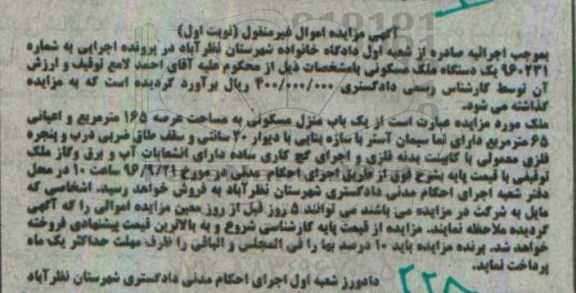 آگهی مزایده اموال غیرمنقول (نوبت اول)
بموجب اجرائیه صادره از شعبه اول دادگاه خانواده شهرستان نظرآباد در پرونده اجرایی به شماره
۹۶۰۲۳۱ یک دستگاه ملک مسکونی بامشخصات ذیل از محکوم علیه آقای احمد لامع توقیف و ارزش
آن توسط کارشناس رسمی دادگستری ۴۰۰/۰۰۰/۰۰۰ ریال برآورد گردیده است که به مزایده
گذاشته می شود.
ملک مورد مزایده عبارت است از یک باب منزل مسکونی به مساحت عرصه ۱۶۵ مترمربع و اعیانی
۶۵ مترمربع دارای نما سیمان آستر با سازه بنایی با دیوار ۲۰ سانتی و سقف طاق ضربی درب و پنجره
فلزی معمولی با کابینت بدنه فلزی و اجرای گچ کاری ساده دارای انشعابات آب و برق وگاز ملک
توقیفی با قیمت پایه بشرح فوق از طریق اجرای احکام مدنی در مورخ ۹۶/۹/۲۱ ساعت ۱۰ در محل
دفتر شعبه اجرای احکام مدنی دادگستری شهرستان نظرآباد به فروش خواهد رسید. اشخاصی که
مایل به شرکت در مزایده می باشند می توانند ۵ روز قبل از روز معین مزایده اموالی را که آگهی
گردیده ملاحظه نمایند. مزایده از قیمت پایه کارشناسی شروع و به بالاترین قیمت پیشنهادی فروخته
خواهد شد. برنده مزایده باید ۱۰ درصد بها را فی المجلس و الباقی را ظرف مهلت حداکثر یک ماه
پرداخت نماید.
دادورز شعبه اول اجرای احکام مدنی دادگستری شهرستان نظرآباد